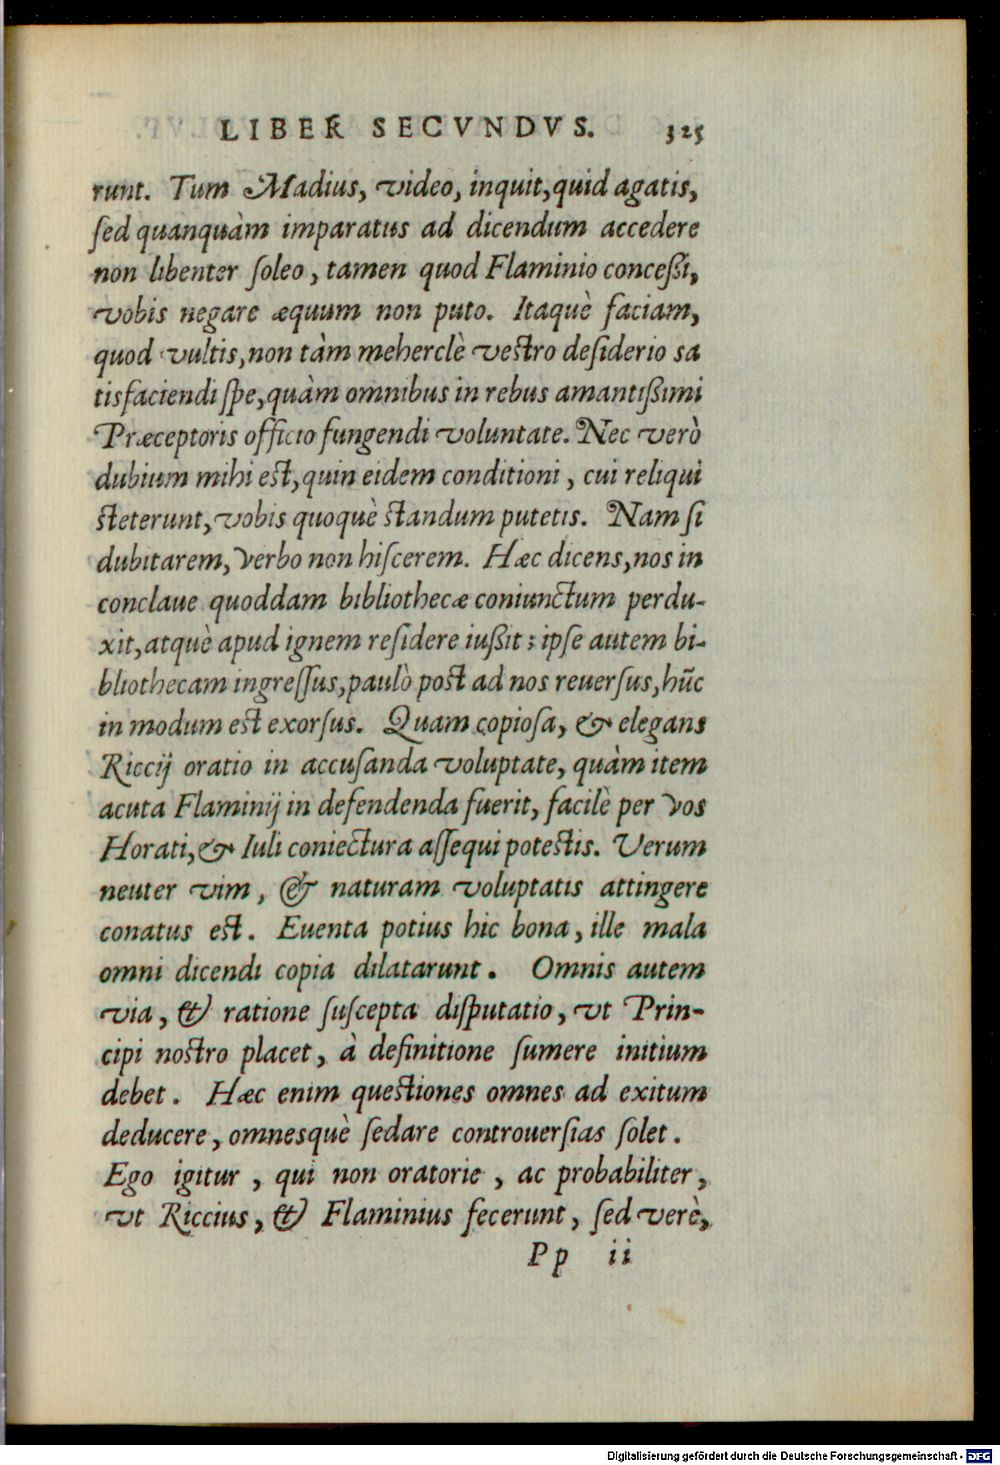 LIBER SECVNDVS. 325
runt. Tum Madius, video, inquit, quid agatis,
ſed quanquàm imparatus ad dicendum accedere
non libenter ſoleo, tamen quod Flaminio conceßi,
vobis negare æquum non puto. Itaquè faciam,
quod vultis, non tàm meherclè veſtro deſiderio sa
tisfaciendi ſpe, quàm omnibus in rebus amantißimi
Præceptoris officio fungendi voluntate. Nec verò
dubium mihi eſt, quin eidem conditioni, cui reliqui
ſteterunt, vobis quoquè ſtandum putetis. Nam ſi
dubitarem, verbo non hiſcerem. Hæc dicens, nos in
conclaue quoddam bibliothecæ coniunctum perdu-
xit, atquè apud ignem reſidere iußit; ipſe autem bi-
bliothecam ingreſſus, paulò poſt ad nos reuerſus, hũc
in modum eſt exorſus. Quam copioſa, & elegans
Riccij oratio in accuſanda voluptate, quàm item
acuta Flaminij in defendenda fuerit, facilè per vos
Horati, & Iuli coniectura aſſequi poteſtis. Verum
neuter vim, & naturam voluptatis attingere
conatus eſt. Euenta potius hic bona, ille mala
omni dicendi copia dilatarunt. Omnis autem
via, & ratione ſuſcepta diſputatio, vt Prin-
cipi noſtro placet, à definitione ſumere initium
debet. Hæc enim queſtiones omnes ad exitum
deducere, omnesquè ſedare controuerſias ſolet.
Ego igitur, qui non oratorie, ac probabiliter,
vt Riccius, & Flaminius fecerunt, ſed verè,
Pp ii
Digitalisierung gefördert durch die Deutsche Forschungsgemeinschaft - DFG